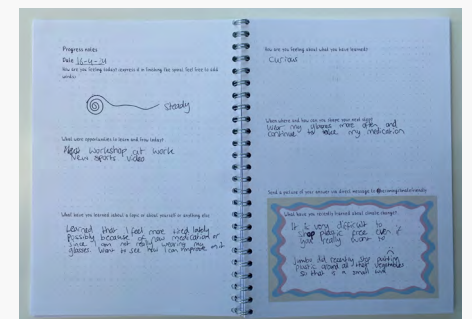 Progress notes
Date 16-4-24
How are you feeling today? Express it in finishing the spiral, feel free to add
words!
Steady
What were opportunities to learn and grow today?
New workshop at work
New sports video
What have you learned about a topic or about yourself or anything else
Learned that I feel more tired lately
Possibly because of new medication or
since I am not really wearing my
glasses. Want to see how I can improve on it
How are you feeling about what you have learned?
Curious
When where and how can you shape your next step?
Wear my glasses more often and
continue to take my medication
Send a picture of your answer via direct message to
What have you recently learned about climate change?
It is very difficult to
shop plastic free even if
you really want to.
Jumbo did recently stop putting
plastic around all their vegetables
so that is a small win